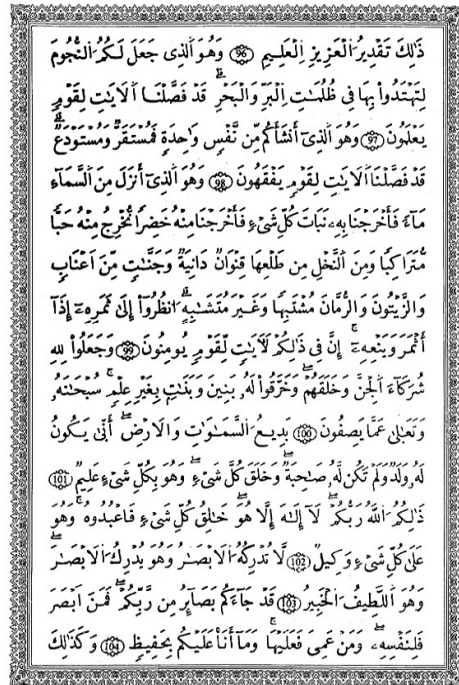 ذَٰلِكَ تَقْدِيرُ الْعَزِيزِ الْعَلِيمِ ﴿96﴾ وَهُوَ الَّذِى جَعَلَ لَكُمُ النُّجُومَ
لِتَهْتَدُوا۟ بِهَا فِى ظُلُمَـٰتِ الْبَرِّ وَالْبَحْرِ ۗ قَدْ فَصَّلْنَا الْاَيَـٰتِ لِقَوْمٍ
يَعْلَمُونَ ﴿97﴾ وَهُوَ الَّذِىٓ أَنْشَأَكُم مِّن نَّفْسٍ وَٰحِدَةٍ فَمُسْتَقَرٌّ وَمُسْتَوْدَعٌ ۗ
قَدْ فَصَّلْنَا الْاَيَـٰتِ لِقَوْمٍ يَفْقَهُونَ ﴿98﴾ وَهُوَ الَّذِىٓ أَنْزَلَ مِنَ السَّمَآءِ
مَآءً فَأَخْرَجْنَا بِهِۦ نَبَاتَ كُلِّ شَىْءٍ فَأَخْرَجْنَا مِنْهُ خَضِرًا نُّخْرِجُ مِنْهُ حَبًّا
مُّتَرَاكِبًا وَمِنَ النَّخْلِ مِن طَلْعِهَا قِنْوَانٌ دَانِيَةٌ وَجَنَّـٰتٍ مِّنْ اَعْنَابٍ
وَالزَّيْتُونَ وَالرُّمَّانَ مُشْتَبِهًا وَغَيْرَ مُتَشَـٰبِهٍ ۗ انْظُرُوٓا۟ إِلَىٰ ثَمَرِهِۦٓ إِذَآ
أَثْمَرَ وَيَنْعِهِۦٓ ۚ إِنَّ فِى ذَٰلِكُمْ لَاَيَـٰتٍ لِّقَوْمٍ يُومِنُونَ ﴿99﴾ وَجَعَلُوا۟ لِلهِ
شُرَكَآءَ الْجِنَّ وَخَلَقَهُمْ ۖ وَخَرَّقُوا۟ لَهُۥ بَنِينَ وَبَنَـٰتٍ بِغَيْرِ عِلْمٍ ۚ سُبْحَـٰنَهُۥ
وَتَعَـٰلَىٰ عَمَّا يَصِفُونَ ﴿100﴾ بَدِيعُ السَّمَـٰوَٰتِ وَالْاَرْضِ ۖ أَنَّىٰ يَكُونُ
لَهُۥ وَلَدٌ وَلَمْ تَكُن لَّهُۥ صَـٰحِبَةٌ ۖ وَخَلَقَ كُلَّ شَىْءٍ ۖ وَهُوَ بِكُلِّ شَىْءٍ عَلِيمٌ ﴿101﴾
ذَٰلِكُمُ اللَّهُ رَبُّكُمْ ۖ لَآ إِلَـٰهَ إِلَّا هُوَ ۖ خَـٰلِقُ كُلِّ شَىْءٍ فَاعْبُدُوهُ ۚ وَهُوَ
عَلَىٰ كُلِّ شَىْءٍ وَكِيلٌ ﴿102﴾ لَّا تُدْرِكُهُ الْاَبْصَـٰرُ وَهُوَ يُدْرِكُ الْاَبْصَـٰرَ ۖ
وَهُوَ اللَّطِيفُ الْخَبِيرُ ﴿103﴾ قَدْ جَآءَكُم بَصَآئِرُ مِن رَّبِّكُمْ ۖ فَمَنْ اَبْصَرَ
فَلِنَفْسِهِۦ ۖ وَمَنْ عَمِىَ فَعَلَيْهَا ۚ وَمَآ أَنَا۠ عَلَيْكُم بِحَفِيظٍ ﴿104﴾ وَكَذَٰلِكَ